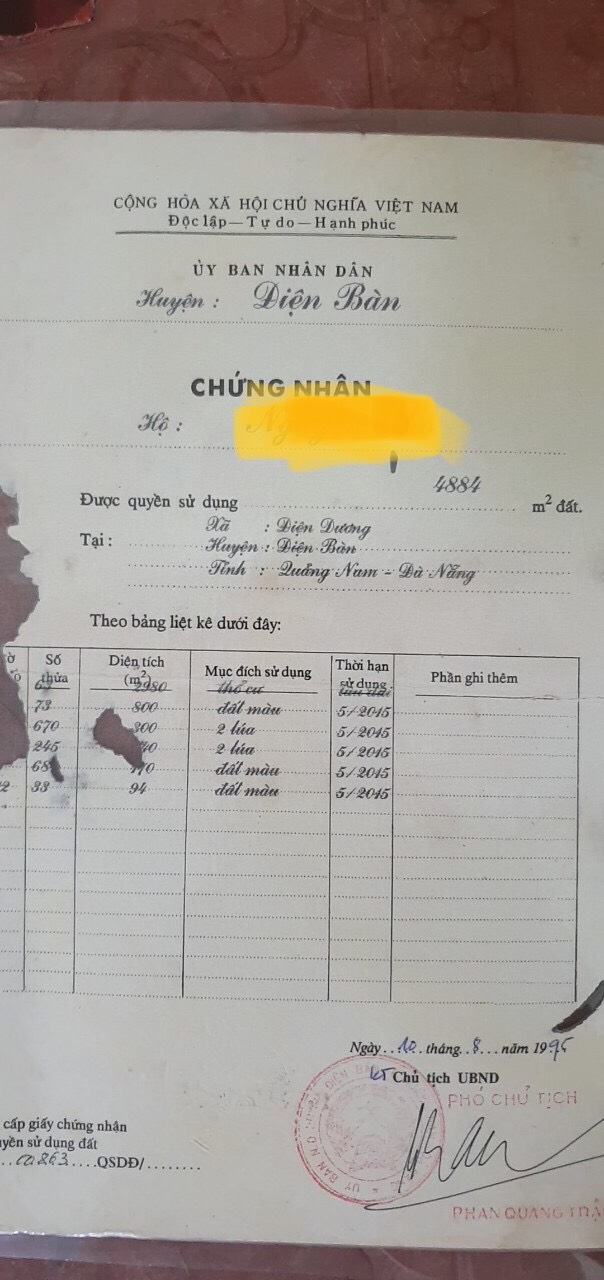 CỘNG HÒA XÃ HỘI CHỦ NGHĨA VIỆT NAM
Độc lập — Tự do — Hạnh phúc
ỦY BAN NHÂN DÂN
Huyện : Điện Bàn
CHỨNG NHẬN
Hộ :
Được quyền sử dụng 4884 m² đất.
Tại : Xã : Điện Dương
Huyện : Điện Bàn
Tỉnh : Quảng Nam - Đà Nẵng
Theo bảng liệt kê dưới đây:
Số thửa Diện tích (m²) Mục đích sử dụng Thời hạn sử dụng Phần ghi thêm
2980 thổ cư lâu dài
73 800 đất màu 5/2015
670 300 2 lúa 5/2015
245 2 lúa 5/2015
đất màu 5/2015
33 94 đất màu 5/2015
Ngày 10 tháng 8 năm 1995
KT Chủ tịch UBND
PHÓ CHỦ TỊCH
cấp giấy chứng nhận
quyền sử dụng đất
QSDĐ/
PHAN QUANG